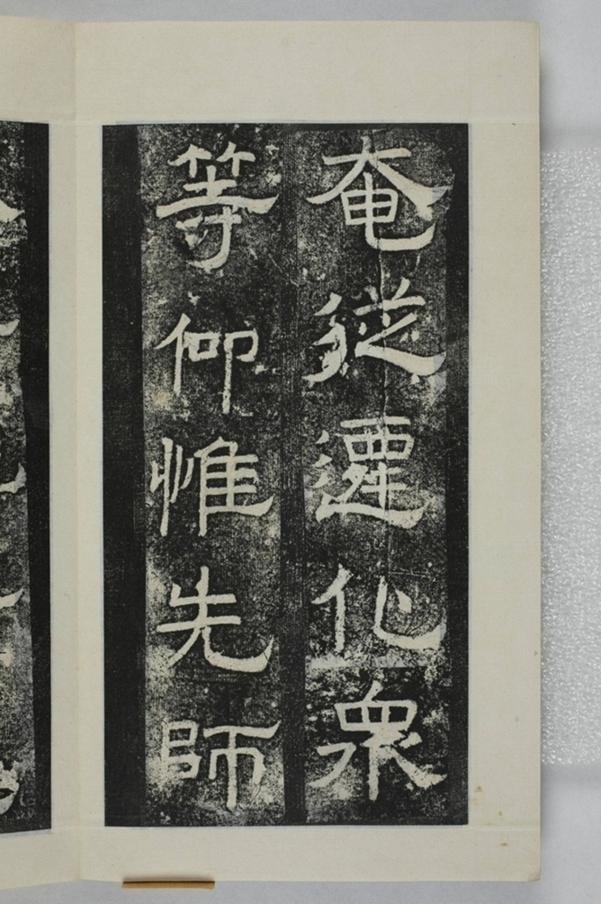 奄從遷化衆
等仰惟先師